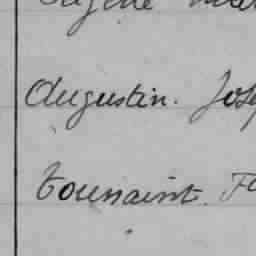 Augustin. Jos
Toussaint. F